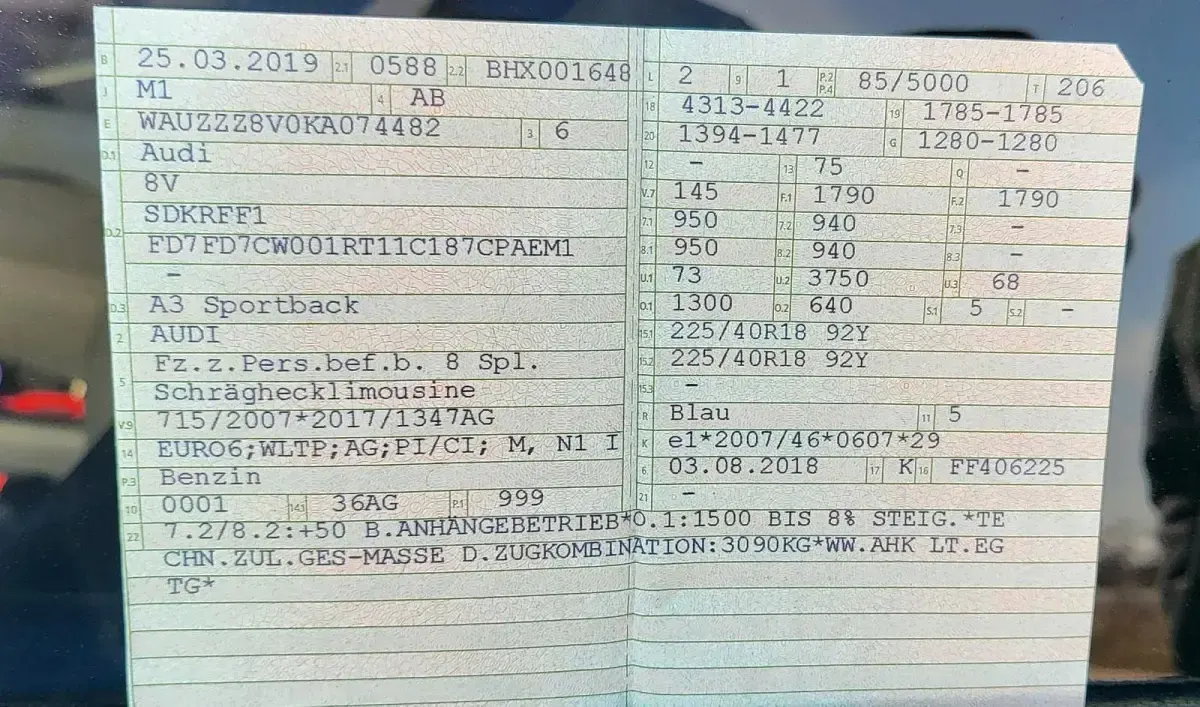 B 25.03.2019 2.1 0588 2.2 BHX001648
J M1 4 AB
E WAUZZZ8V0KA074482 3 6
D.1 Audi
8V
SDKRFF1
D.2 FD7FD7CW001RT11C187CPAEM1
–
D.3 A3 Sportback
2 AUDI
Fz.z.Pers.bef.b. 8 Spl.
5 Schräghecklimousine
V.9 715/2007*2017/1347AG
14 EURO6;WLTP;AG;PI/CI; M, N1 I
P.3 Benzin
10 0001 14.1 36AG P.1 999
L 2 9 1 P.2 P.4 85/5000 T 206
18 4313-4422 19 1785-1785
20 1394-1477 G 1280-1280
12 – 13 75 Q –
V.7 145 F.1 1790 F.2 1790
7.1 950 7.2 940 7.3 –
8.1 950 8.2 940 8.3 –
U.1 73 U.2 3750 U.3 68
O.1 1300 O.2 640 S.1 5 S.2 –
15.1 225/40R18 92Y
15.2 225/40R18 92Y
15.3 –
R Blau 11 5
K e1*2007/46*0607*29
6 03.08.2018 17 K 16 FF406225
21 –
22 7.2/8.2:+50 B.ANHÄNGEBETRIEB*O.1:1500 BIS 8% STEIG.*TE
CHN.ZUL.GES-MASSE D.ZUGKOMBINATION:3090KG*WW.AHK LT.EG
TG*